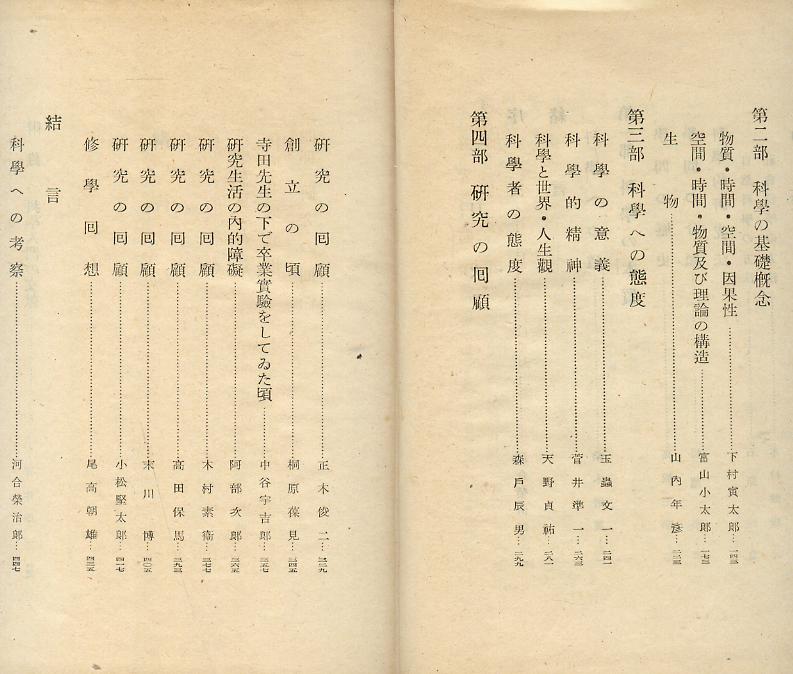 第二部 科學の基礎槪念
物質・時間・空間・因果性………下村寅太郎…一四三
空間・時間・物質及び理論の構造………富山小太郎…一七三
生物………山內年彥…二二三
第三部 科學への態度
科學の意義………玉蟲文一…二四一
科學的精神………菅井準一…二六三
科學と世界・人生觀………天野貞祐…二八一
科學者の態度………森戶辰男…二九九
第四部 硏究の囘顧
硏究の囘顧………正木俊二…三二九
創立の頃………桐原葆見…三四五
寺田先生の下で卒業實驗をしてゐた頃………中谷宇吉郎…三五七
硏究生活の內的障礙………阿部次郎…三六五
硏究の囘顧………木村素衞…三七七
硏究の囘顧………高田保馬…三九三
硏究の囘顧………末川博…四〇五
硏究の囘顧………小松堅太郎…四一七
修學囘想………尾高朝雄…四三五
結言
科學への考察………河合榮治郎…四四七